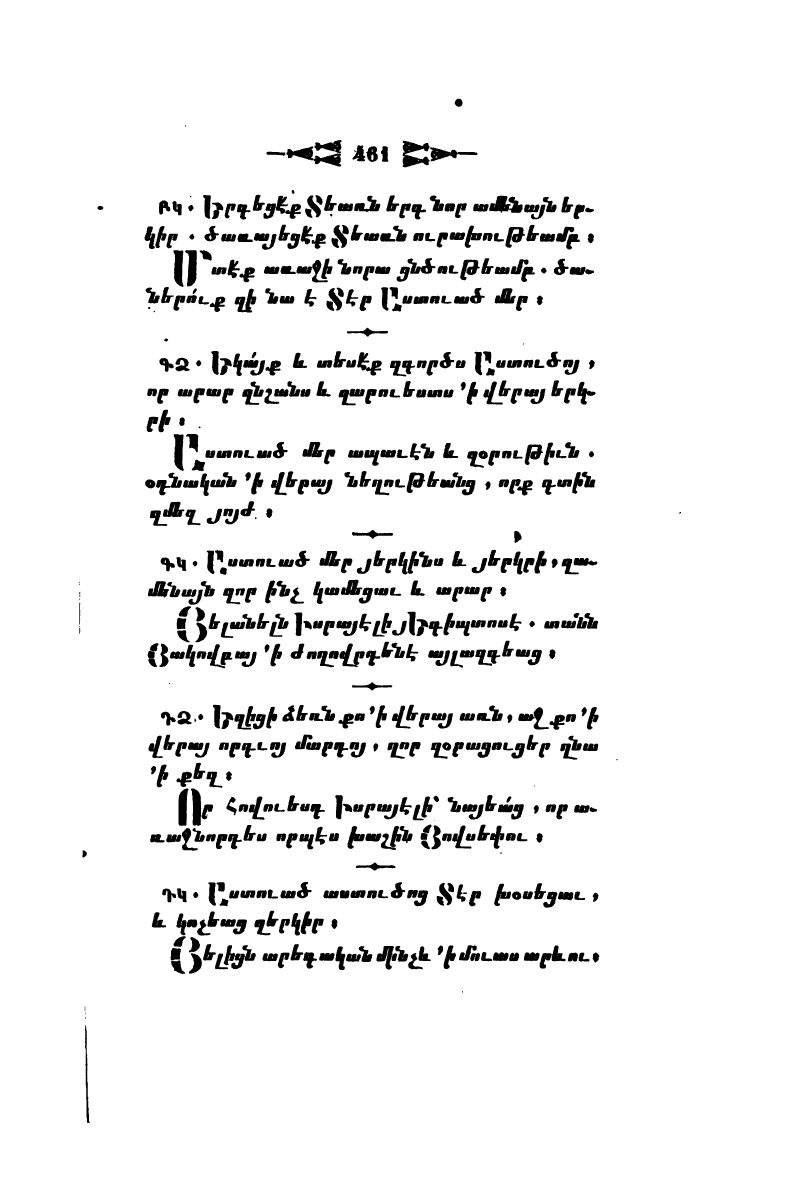 461
ԲԿ . Երգեցէ՛ք Տեառն երգ նոր ամենայն եր-
կիր . ծառայեցէ՛ք Տեառն ուրախութեամբ ։
Մտէք առաջի նորա ցնծութեամբ . ծա-
ներո՛ւք զի նա է Տէր Աստուած մեր ։
ԴՁ . Եկա՛յք և տեսէ՛ք զգործս Աստուծոյ ,
որ արար զնշանս և զարուեստս ՚ի վերայ երկ-
րի ։
Աստուած մեր ապաւէն և զօրութիւն .
օգնական ՚ի վերայ նեղութեանց , որք գտին
զմեզ յոյժ ։
ԳԿ . Աստուած մեր յերկինս և յերկրի , զա-
մենայն զոր ինչ կամեցաւ և արար ։
Յելանելն Իսրայէլի յԵգիպտոսէ . տանն
Յակովբայ ՚ի ժողովրդենէ այլազգեաց ։
ԴՁ . Եղիցի ձեռն քո ՚ի վերայ առն , աջ քո ՚ի
վերայ որդւոյ մարդոյ , զոր զօրացուցեր զնա
՚ի քեզ ։
Որ հովուեսդ Իսրայէլի՝ նայեա՛ց , որ ա-
ռաջնորդես որպէս խաշին Յովսեփու ։
ԴԿ . Աստուած աստուծոց Տէր խօսեցաւ ,
և կոչեաց զերկիր ։
Յելից արեգական մինչև ՚ի մուտս արևու ։